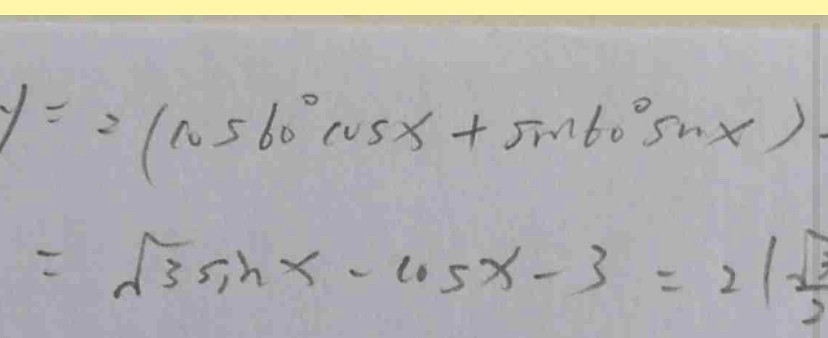 y = 2(cos60°cosx + sin60°sinx) -
= √3 sinx - cosx - 3 = 2(√3/2